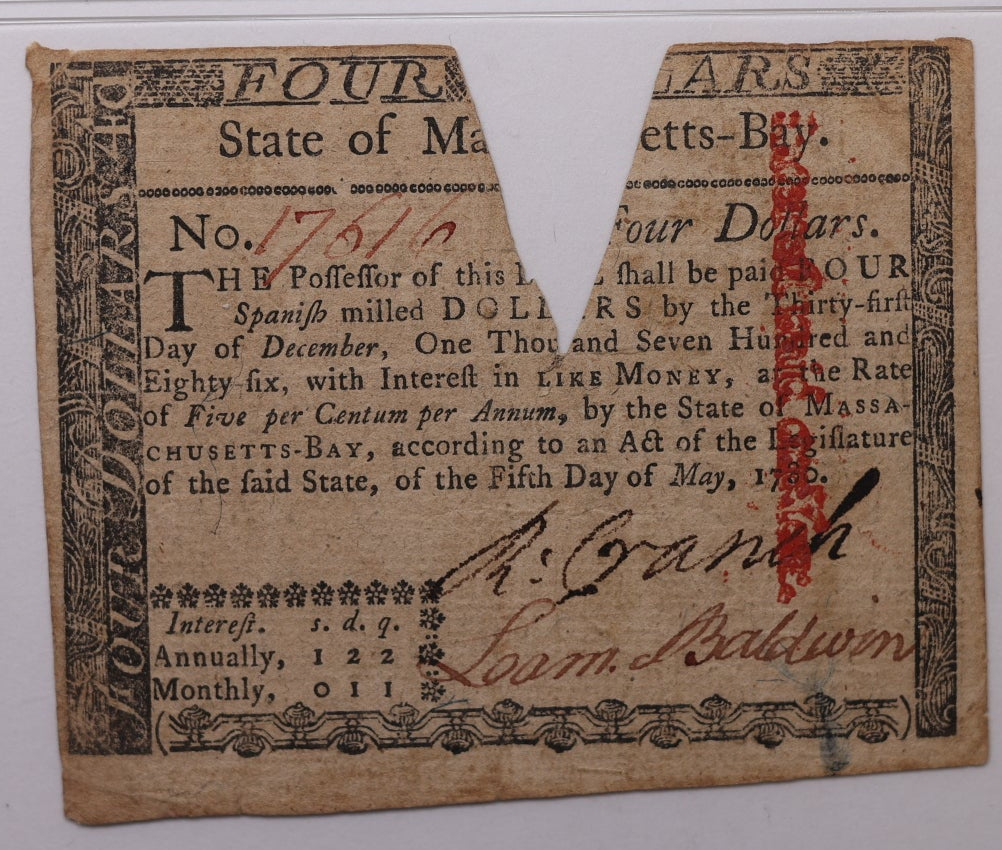 FOUR LARS
State of Ma etts-Bay.
No. 17616 Four Dollars.
THE Poſſeſſor of this ſhall be paid FOUR
Spaniſh milled DOLLARS by the Thirty-firſt
Day of December, One Thouſand Seven Hundred and
Eighty-ſix, with Intereſt in LIKE MONEY, at the Rate
of Five per Centum per Annum, by the State of MASSA-
CHUSETTS-BAY, according to an Act of the Legiſlature
of the ſaid State, of the Fifth Day of May, 1780.
R: Cranch
Intereſt. s. d. q.
Annually, 1 2 2
Monthly, 0 1 1
Loam. Baldwin
FOUR DOLLARS